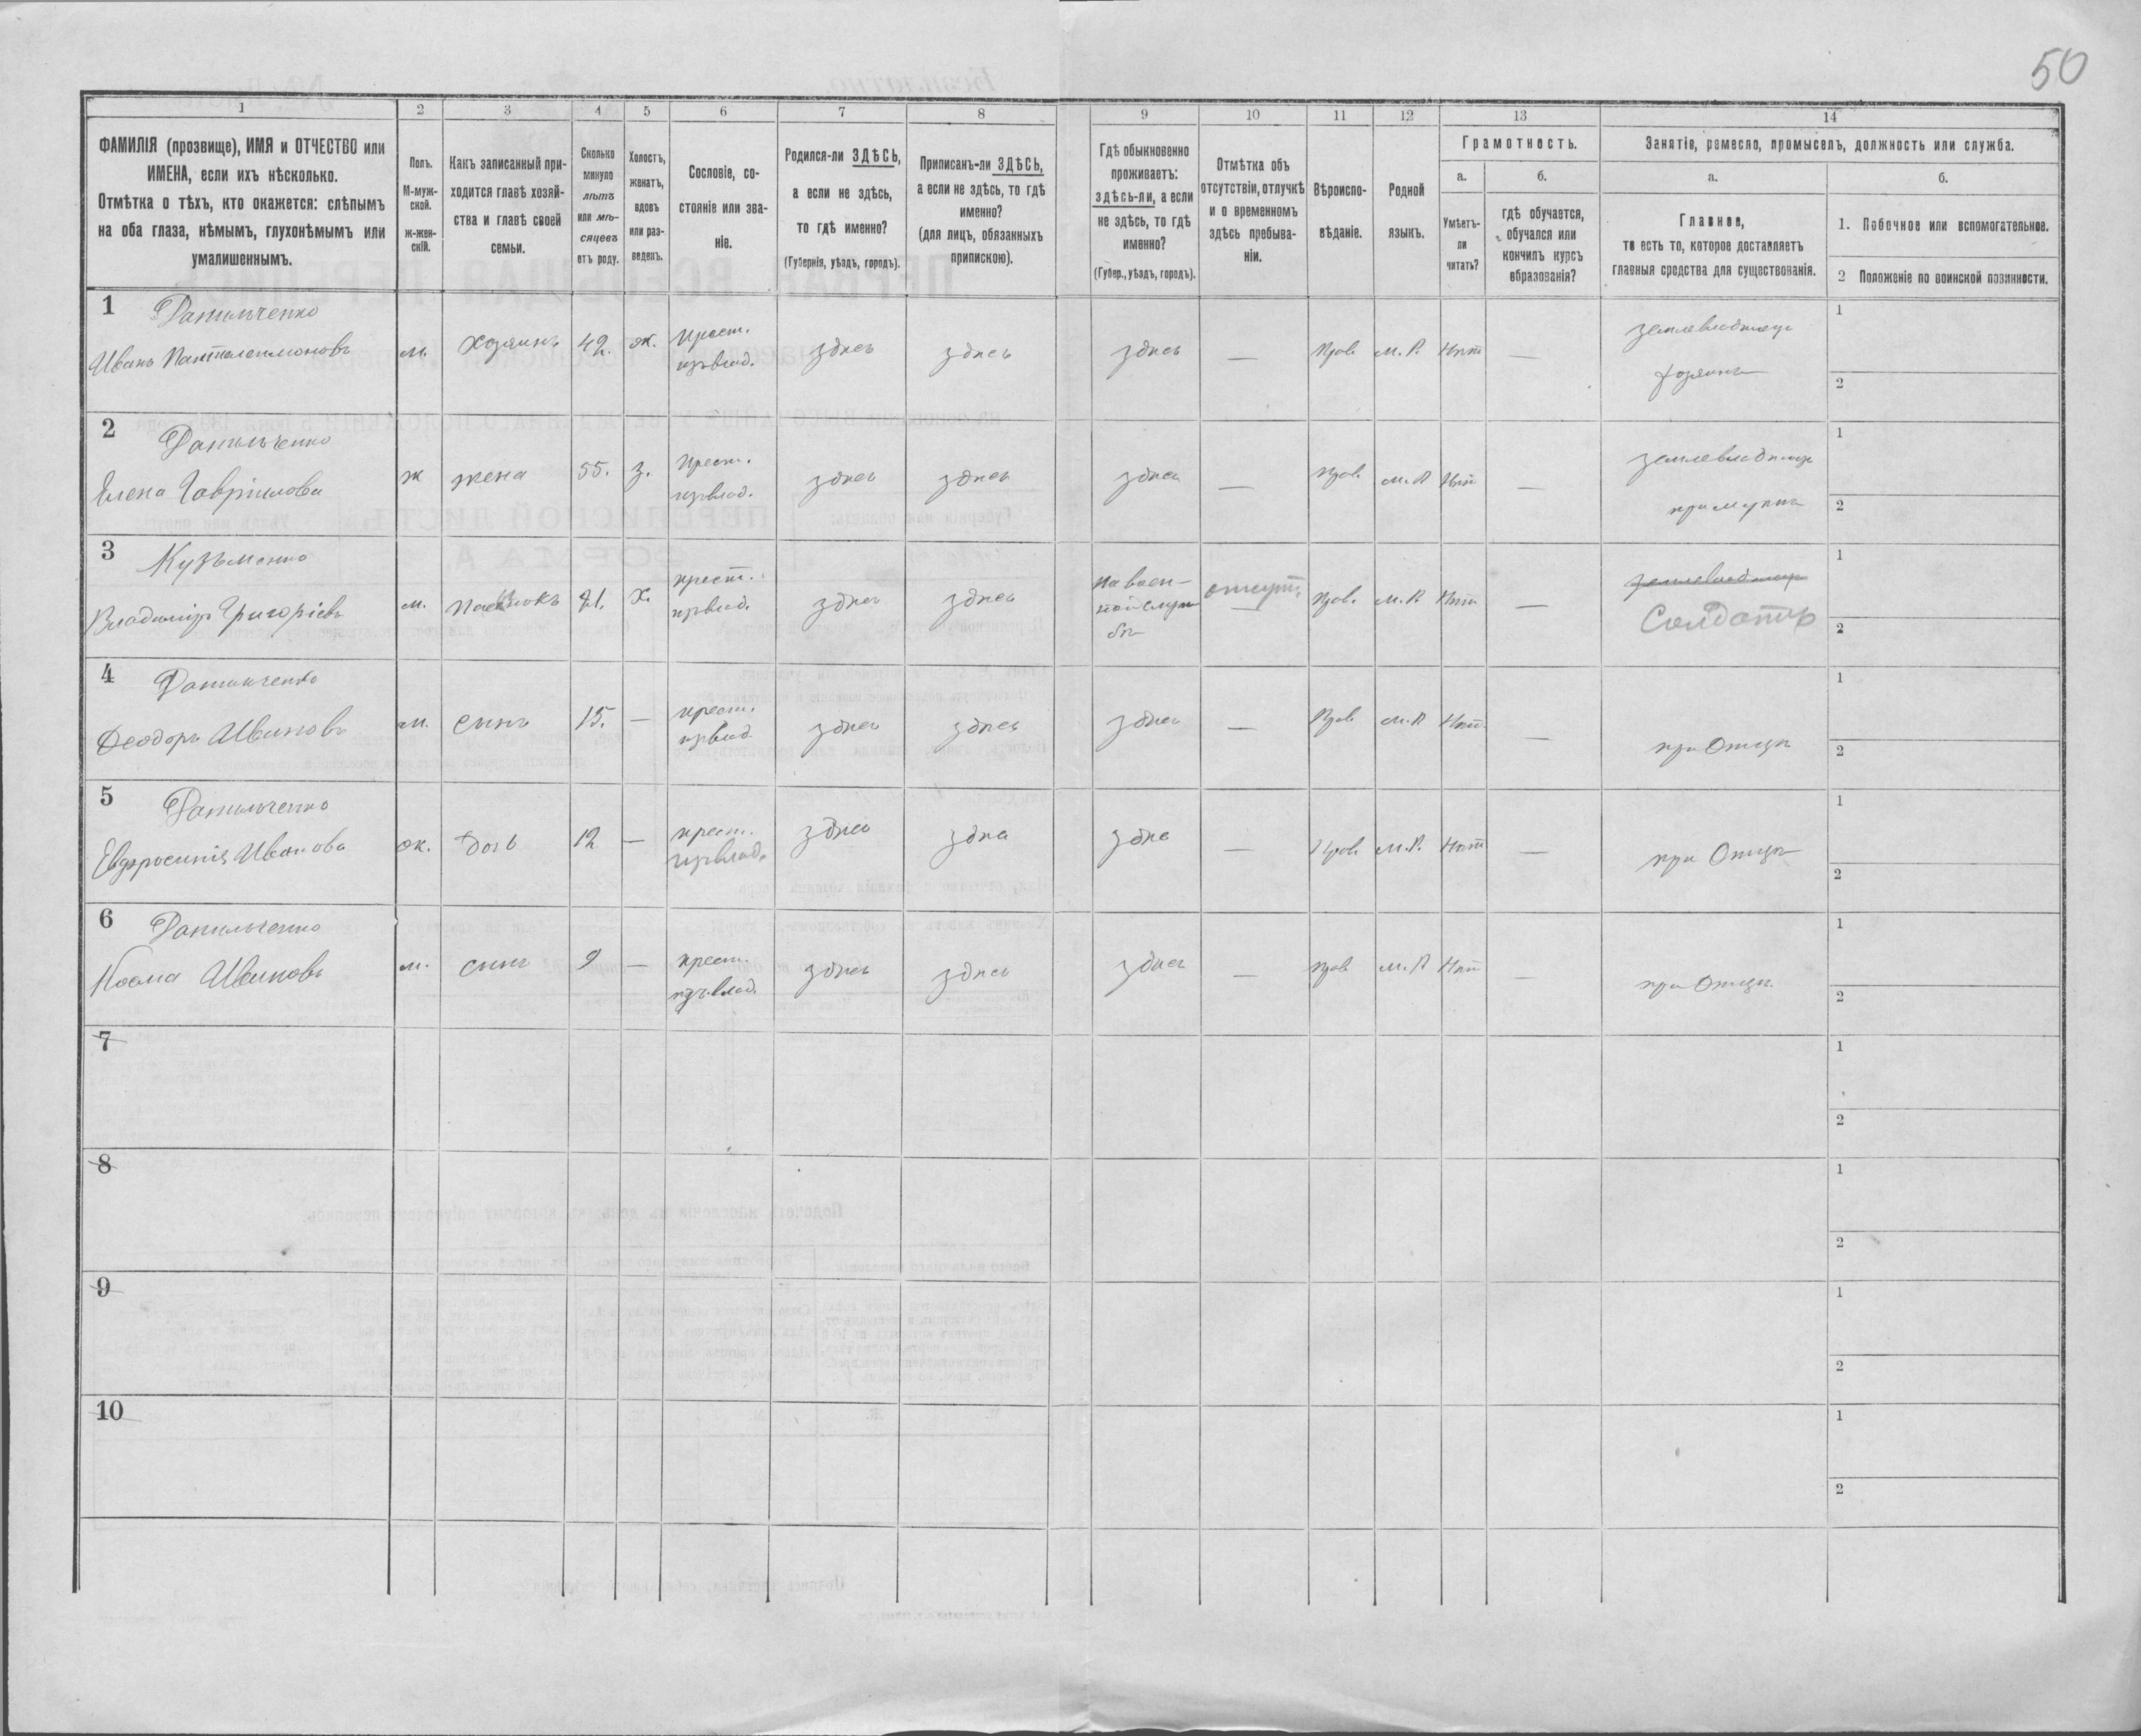 50
1
2
3
4
5
6
7
8
9
10
11
12
13
14
ФАМИЛІЯ (прозвище), ИМЯ и ОТЧЕСТВО или
ИМЕНА, если ихъ нѣсколько.
Отмѣтка о тѣхъ, кто окажется: слѣпымъ
на оба глаза, нѣмымъ, глухонѣмымъ или
умалишеннымъ.
Полъ.
М-муж-
ской.
ж-жен-
скій.
Какъ записанный при-
ходится главѣ хозяй-
ства и главѣ своей
семьи.
Сколько
минуло
лѣтъ
или мѣ-
сяцевъ
отъ роду.
Холостъ,
женатъ,
вдовъ
или раз-
веденъ.
Сословіе, со-
стояніе или зва-
ніе.
Родился-ли ЗДѢСЬ,
а если не здѣсь,
то гдѣ именно?
(Губернія, уѣздъ, городъ).
Приписанъ-ли ЗДѢСЬ,
а если не здѣсь, то гдѣ
именно?
(для лицъ, обязанныхъ
припискою).
Гдѣ обыкновенно
проживаетъ:
здѣсь-ли, а если
не здѣсь, то гдѣ
именно?
(Губер., уѣздъ, городъ).
Отмѣтка объ
отсутствіи, отлучкѣ
и о временномъ
здѣсь пребыва-
ніи.
Вѣроиспо-
вѣданіе.
Родной
языкъ.
Грамотность.
а.
б.
Умѣетъ-
ли
читать?
гдѣ обучается,
обучался или
кончилъ курсъ
образованія?
Занятіе, ремесло, промыселъ, должность или служба.
а.
б.
Главное,
то есть то, которое доставляетъ
главныя средства для существованія.
1. Побочное или вспомогательное.
2 Положеніе по воинской повинности.
1 Данильченко
Иванъ Пантелеимоновъ
м. Хозяинъ 42. ж. Крест.
изъ влад. здѣсь здѣсь здѣсь — Прав. м. Р. Нѣтъ —
землевладѣлецъ
хозяинъ
1
2
2 Данильченко
Елена Гавріилова
ж жена 55. з. Крест.
изъ влад. здѣсь здѣсь здѣсь — Прав. м. Р Нѣтъ —
землевладѣлецъ
при мужѣ
1
2
3 Кузьменко
Владиміръ Григоріевъ
м. пасынокъ 21. х. крест.
изъ влад. здѣсь здѣсь на воен-
ной служ
бѣ отсут. — Прав. м. Р. Нѣтъ —
землевладѣлецъ
Солдатъ
1
2
4 Данильченко
Ѳеодоръ Ивановъ
м. сынъ 15. — крест.
изъ влад. здѣсь здѣсь здѣсь — Прав. м. Р Нѣтъ —
при Отцѣ
1
2
5 Данильченко
Евфросинія Иванова
ж. дочь 12 — крест.
изъ влад. здѣсь здѣс здѣс — Прав. м. Р. Нѣтъ —
при Отцѣ
1
2
6 Данильченко
Косма Ивановъ
м. сынъ 9 — крест.
изъ влад. здѣсь здѣсь здѣсь — прав. м. Р Нѣтъ —
при Отцѣ.
1
2
7
1
2
8
1
2
9
1
2
10
1
2